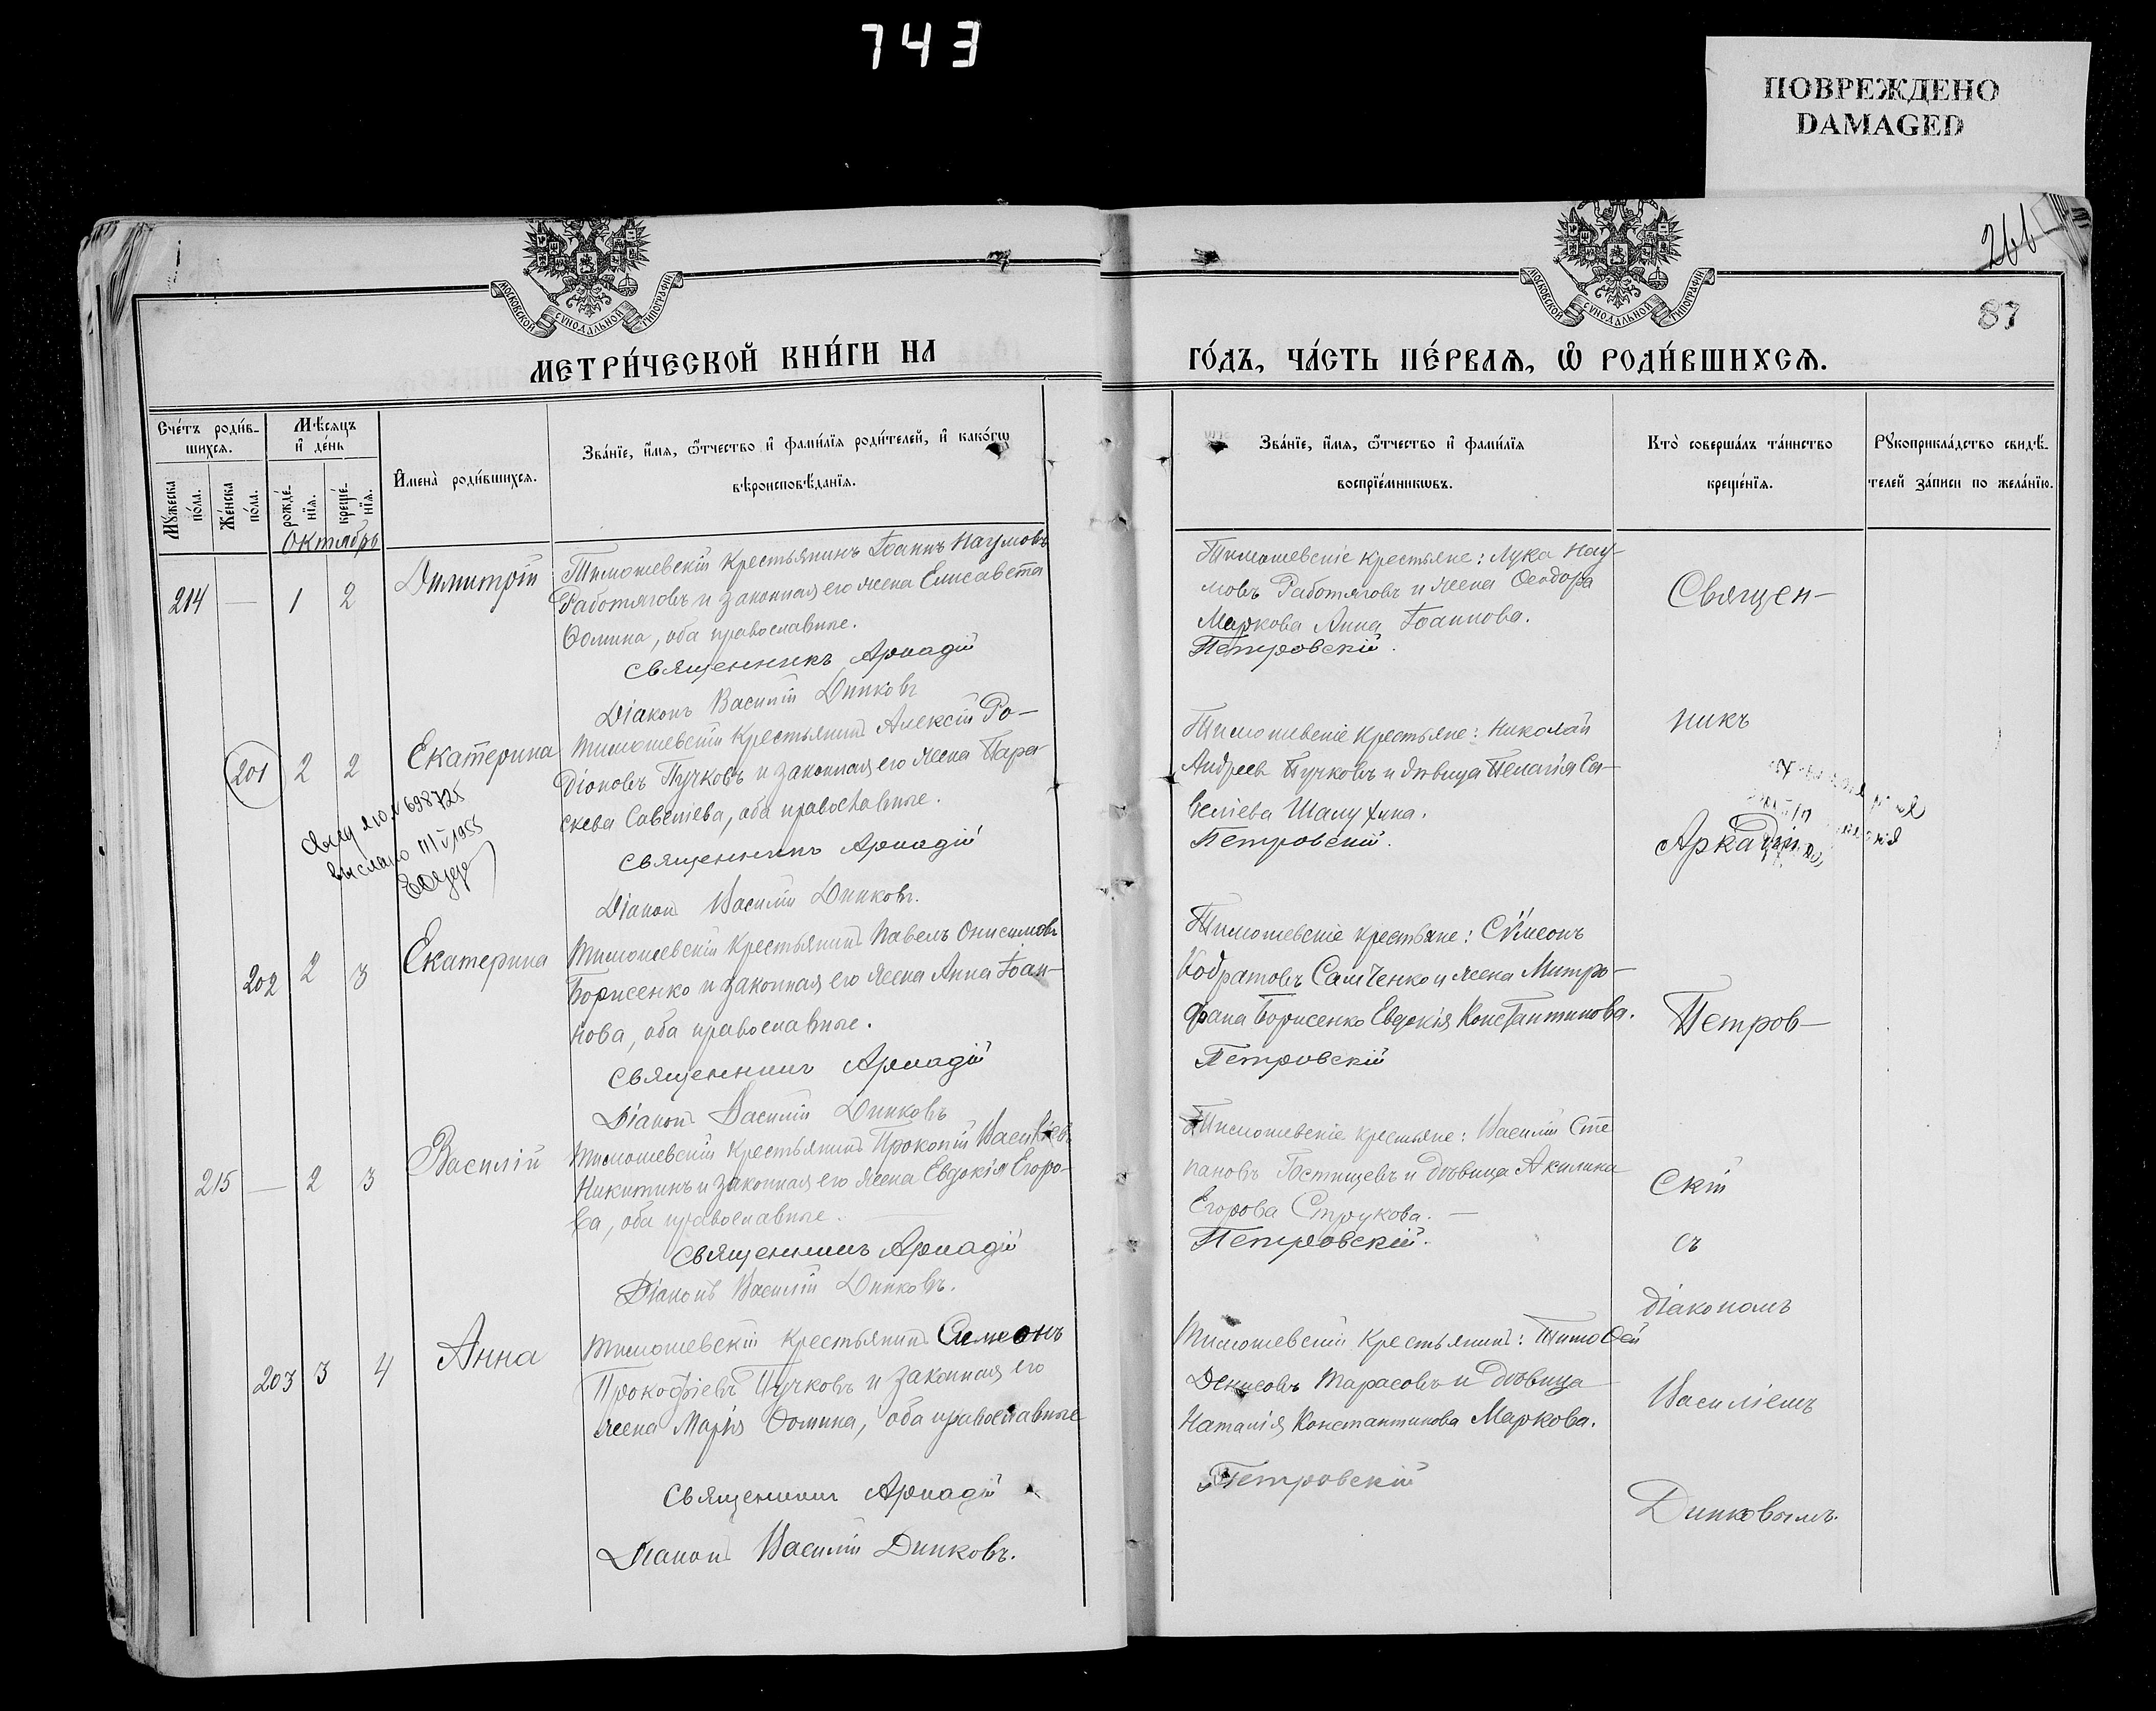 743
ПОВРЕЖДЕНО
DAMAGED
МОСКОВСКОЙ СУНОДАЛЬНОЙ ТИПОГРАФІИ
МОСКОВСКОЙ СУНОДАЛЬНОЙ ТИПОГРАФІИ
266
87
МЕТРИ́ЧЕСКОЙ КНИ́ГИ НА
ГО́ДЪ, ЧА́СТЬ ПЕ́РВАѦ, Ѡ҆ РОДИ́ВШИХСѦ.
Сче́тъ роди́в-
шихсѧ.
Мѣ́сѧцъ
и҆ де́нь
И҆мена̀ роди́вшихсѧ.
Зва́нїе, и҆́мѧ, ѻ҆́тчество и҆ фами́лїѧ роди́телей, и҆ како́гѡ
вѣроисповѣ́данїѧ.
Мꙋ́жеска
по́ла.
Же́нска
по́ла.
рожде́-
нїѧ.
креще́-
нїѧ.
Зва́нїе, и҆́мѧ, ѻ҆́тчество и҆ фами́лїѧ
воспрїе́мникѡвъ.
Кто̀ соверша́лъ та́инство
креще́нїѧ.
Рꙋкоприкла́дство свидѣ́-
телей за́писи по жела́нїю.
Октябрь
214 — 1 2
Димитрій
Тимошевскій крестьянинъ Іоаннъ Наумовъ
Работяговъ и законная его жена Елисавета
Ѳомина, оба православные.
Священникъ Аркадій
Діаконъ Василій Динковъ
Тимошевскіе крестьяне: Лука Нау-
мовъ Работяговъ и жена Ѳеодора
Маркова Анна Іоаннова.
Петровскій.
201 2 2
Екатерина
Тимошевскій крестьянинъ Алексій Ро-
діоновъ Пучковъ и законная его жена Пара-
скева Савелiева, оба православные.
Священникъ Аркадій
Діаконъ Василій Динковъ.
698725
выслано 1955
Тимошевскіе крестьяне: Николай
Андреевъ Пучковъ и дѣвица Пелагія Са-
веліева Шалухина.
Петровскій.
202 2 3
Екатерина
Тимошевскій крестьянинъ Павелъ Онисимовъ
Борисенко и законная его жена Анна Іоан-
нова, оба православные.
Священникъ Аркадій
Діаконъ Василій Динковъ
Тимошевскіе крестьяне: Сѵмеонъ
Кодратовъ Самченко и жена Митро-
фана Борисенко Евдокія Константинова.
Петровскій
215 — 2 3
Василій
Тимошевскій крестьянинъ Прокопій Васильевъ
Никитинъ и законная его жена Евдокія Егоро-
ва, оба православные.
Священникъ Аркадій
Діаконъ Василій Динковъ.
Тимошевскіе крестьяне: Василій Сте
пановъ Гостищевъ и дѣвица Акилина
Егорова Струкова.
Петровскій.
203 3 4
Анна
Тимошевскій крестьянинъ Симеонъ
Прокофіевъ Пучковъ и законная его
жена Марія Ѳомина, оба православные
Священникъ Аркадій
Діаконъ Василій Динковъ.
Тимошевскій крестьянинъ: Тимоѳей
Денисовъ Тарасовъ и дѣвица
Наталія Константинова Маркова.
Петровскій
Священ-
никъ
Аркадій
Петров-
скій
съ
діакономъ
Василіемъ
Динковымъ.